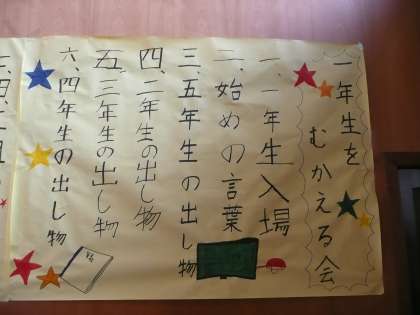 一年生を
むかえる会
一、一年生入場
二、始めの言葉
三、五年生の出し物
四、二年生の出し物
五、三年生の出し物
六、四年生の出し物